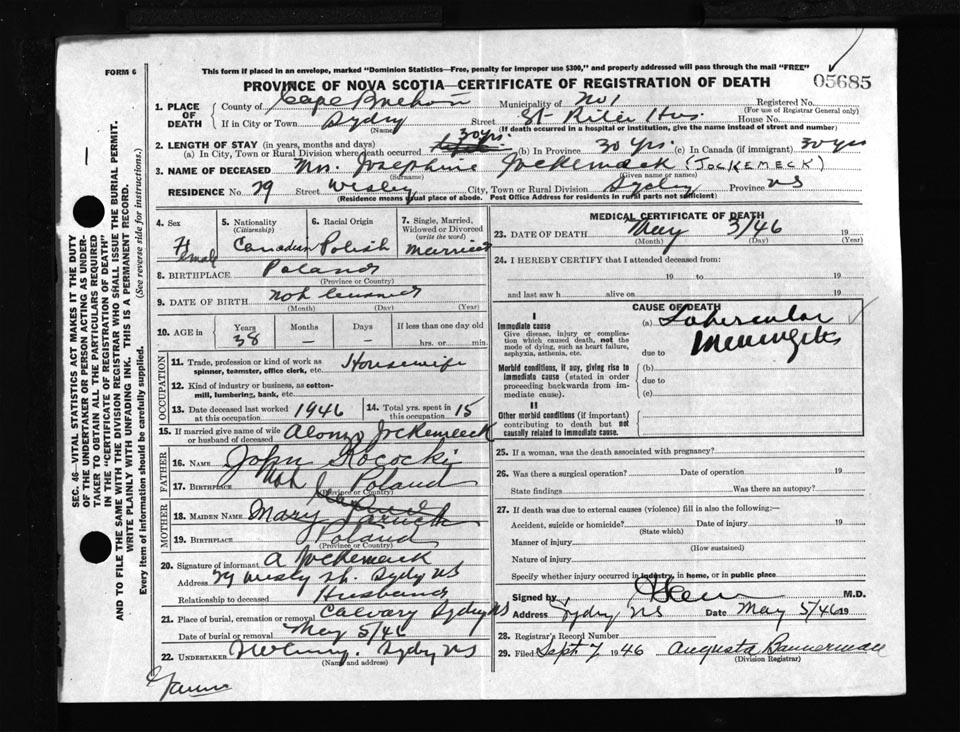 FORM 6
This form if placed in an envelope, marked "Dominion Statistics—Free, penalty for improper use $300," and properly addressed will pass through the mail "FREE"
PROVINCE OF NOVA SCOTIA—CERTIFICATE OF REGISTRATION OF DEATH
05685
1. PLACE OF DEATH County of Cape Breton Municipality of No 1 Registered No.
(For use of Registrar General only)
If in City or Town Sydney Street St Rita Hos. House No.
(Name) (If death occurred in a hospital or institution, give the name instead of street and number)
2. LENGTH OF STAY (in years, months and days) 30 yrs.
(a) In City, Town or Rural Division where death occurred (b) In Province 30 yrs. (c) In Canada (if immigrant) 30 yrs
3. NAME OF DECEASED Mrs. Josephine Jockemack (JOCKEMECK)
(Surname) (Given name or names)
RESIDENCE No. 79 Street Wesley City, Town or Rural Division Sydney Province NS
(Residence means usual place of abode. Post Office Address for residents in rural parts not sufficient)
4. Sex Female
5. Nationality (Citizenship) Canadian
6. Racial Origin Polish
7. Single, Married, Widowed or Divorced (write the word) Married
8. BIRTHPLACE Poland
(Province or Country)
9. DATE OF BIRTH not
(Month) (Day) (Year)
10. AGE in Years 38 Months — Days — If less than one day old
hrs. or min.
OCCUPATION
11. Trade, profession or kind of work as spinner, teamster, office clerk, etc. Housewife
12. Kind of industry or business, as cotton-mill, lumbering, bank, etc.
13. Date deceased last worked at this occupation 1946
14. Total yrs. spent in this occupation 15
15. If married give name of wife or husband of deceased Alonzo Jockemeck
FATHER
16. NAME John Kococki
17. BIRTHPLACE Poland
(Province or Country)
MOTHER
18. MAIDEN NAME Mary
19. BIRTHPLACE Poland
(Province or Country)
20. Signature of informant A Jockemack
Address 79 Wesly St. Sydney NS
Relationship to deceased Husband
21. Place of burial, cremation or removal Calvary Sydney NS
Date of burial or removal May 5/46
22. UNDERTAKER Sydney NS
(Name and address)
MEDICAL CERTIFICATE OF DEATH
23. DATE OF DEATH May 3/46 19
(Month) (Day) (Year)
24. I HEREBY CERTIFY that I attended deceased from:
19 to 19
and last saw h alive on 19
CAUSE OF DEATH
I
Immediate cause
Give disease, injury or complication which caused death, not the mode of dying, such as heart failure, asphyxia, asthenia, etc.
(a) Tubercular
due to Meningitis
Morbid conditions, if any, giving rise to immediate cause (stated in order proceeding backwards from immediate cause).
(b)
due to
(c)
II
Other morbid conditions (if important) contributing to death but not causally related to immediate cause.
25. If a woman, was the death associated with pregnancy?
26. Was there a surgical operation? Date of operation 19
State findings Was there an autopsy?
27. If death was due to external causes (violence) fill in also the following:—
Accident, suicide or homicide? Date of injury 19
(State which)
Manner of injury
(How sustained)
Nature of injury
Specify whether injury occurred in industry, in home, or in public place
Signed by M.D.
Address Sydney NS Date May 5/46 19
28. Registrar's Record Number
29. Filed Sept 7 1946 Augusta Bannerman
(Division Registrar)
SEC. 46—VITAL STATISTICS ACT MAKES IT THE DUTY
OF THE UNDERTAKER OR PERSON ACTING AS UNDER-
TAKER TO OBTAIN ALL THE PARTICULARS REQUIRED
IN THE "CERTIFICATE OF REGISTRATION OF DEATH"
AND TO FILE THE SAME WITH THE DIVISION REGISTRAR WHO SHALL ISSUE THE BURIAL PERMIT.
WRITE PLAINLY WITH UNFADING INK. THIS IS A PERMANENT RECORD.
Every item of information should be carefully supplied. (See reverse side for instructions.)